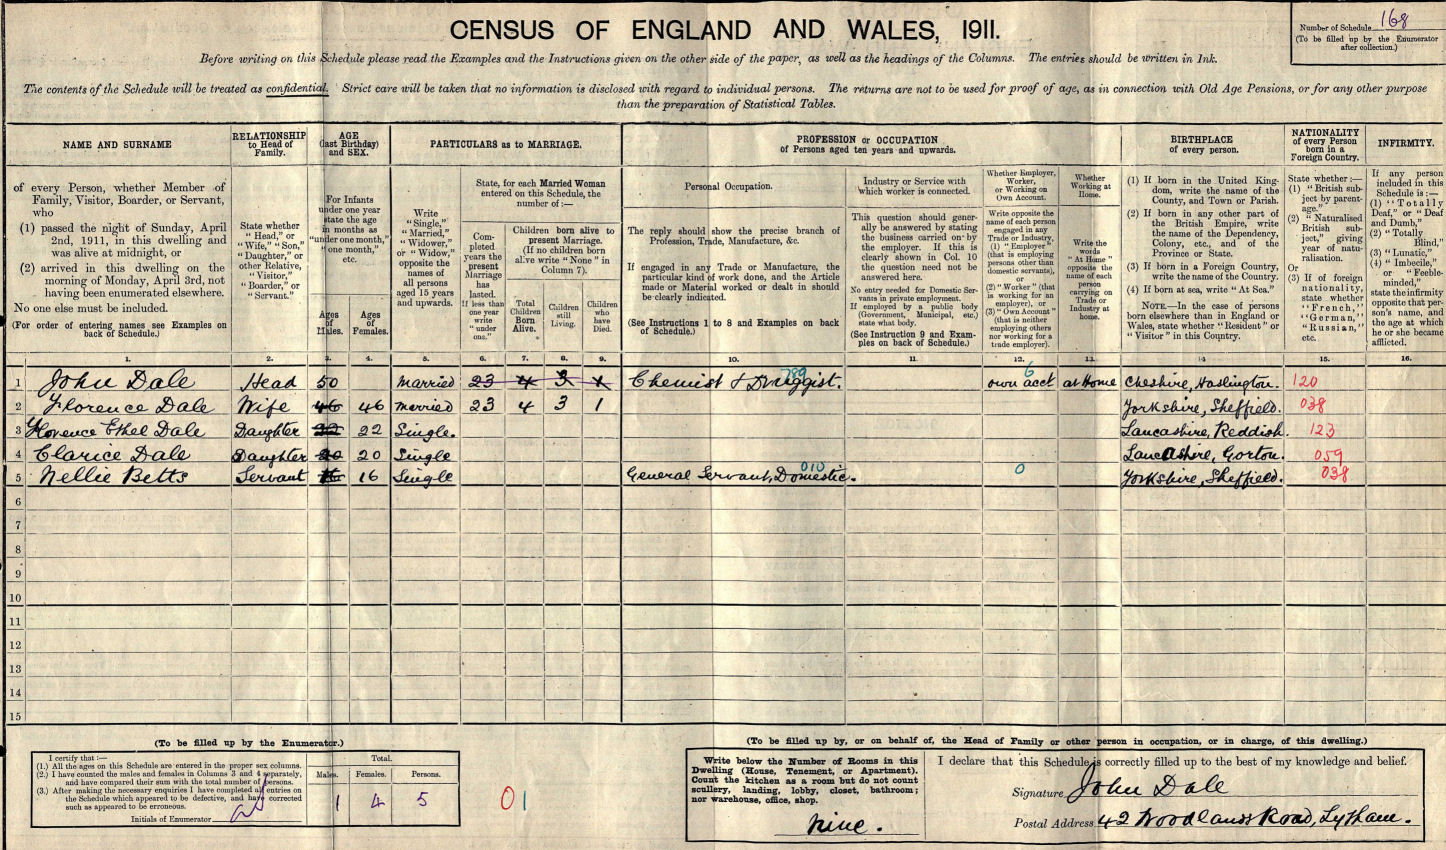 CENSUS OF ENGLAND AND WALES, 1911.
Number of Schedule 168
(To be filled up by the Enumerator
after collection.)
Before writing on this Schedule please read the Examples and the Instructions given on the other side of the paper, as well as the headings of the Columns. The entries should be written in Ink.
The contents of the Schedule will be treated as confidential. Strict care will be taken that no information is disclosed with regard to individual persons. The returns are not to be used for proof of age, as in connection with Old Age Pensions, or for any other purpose
than the preparation of Statistical Tables.
NAME AND SURNAME
RELATIONSHIP
to Head of
Family.
AGE
(last Birthday)
and SEX.
PARTICULARS as to MARRIAGE.
PROFESSION or OCCUPATION
of Persons aged ten years and upwards.
BIRTHPLACE
of every person.
NATIONALITY
of every Person
born in a
Foreign Country.
INFIRMITY.
of every Person, whether Member of
Family, Visitor, Boarder, or Servant,
who
(1) passed the night of Sunday, April
2nd, 1911, in this dwelling and
was alive at midnight, or
(2) arrived in this dwelling on the
morning of Monday, April 3rd, not
having been enumerated elsewhere.
No one else must be included.
(For order of entering names see Examples on
back of Schedule.)
State whether
"Head," or
"Wife," "Son,"
"Daughter," or
other Relative,
"Visitor,"
"Boarder," or
"Servant."
For Infants
under one year
state the age
in months as
"under one month,"
"one month,"
etc.
Ages
of
Males.
Ages
of
Females.
Write
"Single,"
"Married,"
"Widower,"
or "Widow,"
opposite the
names of
all persons
aged 15 years
and upwards.
State, for each Married Woman
entered on this Schedule, the
number of:—
Completed
years the
present
Marriage
has
lasted.
If less than
one year
write
"under
one."
Children born alive to
present Marriage.
(If no children born
alive write "None" in
Column 7).
Total
Children
Born
Alive.
Children
still
Living.
Children
who
have
Died.
Personal Occupation.
The reply should show the precise branch of
Profession, Trade, Manufacture, &c.
If engaged in any Trade or Manufacture, the
particular kind of work done, and the Article
made or Material worked or dealt in should
be clearly indicated.
(See Instructions 1 to 8 and Examples on back
of Schedule.)
Industry or Service with
which worker is connected.
This question should gener-
ally be answered by stating
the business carried on by
the employer. If this is
clearly shown in Col. 10
the question need not be
answered here.
No entry needed for Domestic Ser-
vants in private employment.
If employed by a public body
(Government, Municipal, etc.)
state what body.
(See Instruction 9 and Exam-
ples on back of Schedule.)
Whether Employer,
Worker,
or Working on
Own Account.
Write opposite the
name of each person
engaged in any
Trade or Industry,
(1) "Employer"
(that is employing
persons other than
domestic servants),
or
(2) "Worker" (that
is working for an
employer), or
(3) "Own Account"
(that is neither
employing others
nor working for a
trade employer).
Whether
Working at
Home.
Write the
words
"At Home"
opposite the
name of each
person
carrying on
Trade or
Industry at
home.
(1) If born in the United King-
dom, write the name of the
County, and Town or Parish.
(2) If born in any other part of
the British Empire, write
the name of the Dependency,
Colony, etc., and of the
Province or State.
(3) If born in a Foreign Country,
write the name of the Country.
(4) If born at sea, write "At Sea."
NOTE.—In the case of persons
born elsewhere than in England or
Wales, state whether "Resident" or
"Visitor" in this Country.
State whether:—
(1) "British sub-
ject by parent-
age,"
(2) "Naturalised
British sub-
ject," giving
year of natu-
ralisation.
Or
(3) If of foreign
nationality,
state whether
"French,"
"German,"
"Russian,"
etc.
If any person
included in this
Schedule is:—
(1) "Totally
Deaf," or "Deaf
and Dumb,"
(2) "Totally
Blind,"
(3) "Lunatic,"
(4) "Imbecile,"
or "Feeble-
minded,"
state the infirmity
opposite that per-
son's name, and
the age at which
he or she became
afflicted.
1. 2. 3. 4. 5. 6. 7. 8. 9. 10. 11. 12. 13. 14 15. 16.
1 John Dale Head 50 Married 23 4 3 1 Chemist & Druggist. 789 own acct 6 at Home Cheshire, Haslington. 120
2 Florence Dale Wife 46 46 Married 23 4 3 1 Yorkshire, Sheffield. 038
3 Florence Ethel Dale Daughter 22 22 Single. Lancashire, Reddish. 123
4 Clarice Dale Daughter 20 20 Single Lancashire, Gorton. 059
5 Nellie Betts Servant 16 16 Single General Servant, Domestic. 010 0 Yorkshire, Sheffield. 038
6
7
8
9
10
11
12
13
14
15
(To be filled up by the Enumerator.)
I certify that:—
(1.) All the ages on this Schedule are entered in the proper sex columns.
(2.) I have counted the males and females in Columns 3 and 4 separately,
and have compared their sum with the total number of persons.
(3.) After making the necessary enquiries I have completed all entries on
the Schedule which appeared to be defective, and have corrected
such as appeared to be erroneous.
Initials of Enumerator
Total.
Males. Females. Persons.
1 4 5
01
(To be filled up by, or on behalf of, the Head of Family or other person in occupation, or in charge, of this dwelling.)
Write below the Number of Rooms in this
Dwelling (House, Tenement, or Apartment).
Count the kitchen as a room but do not count
scullery, landing, lobby, closet, bathroom;
nor warehouse, office, shop.
Nine.
I declare that this Schedule is correctly filled up to the best of my knowledge and belief.
Signature John Dale
Postal Address 42 Woodlands Road, Lytham.